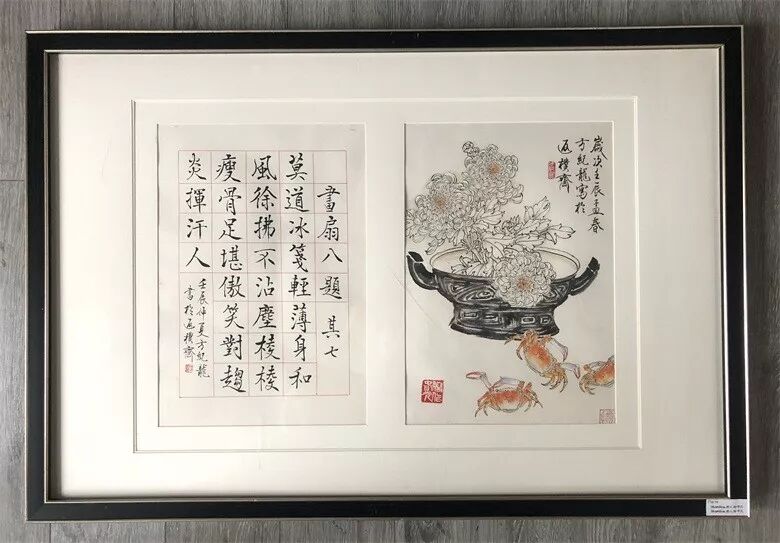 畫扇八題 其七
莫道冰箋輕薄身和
風徐拂不沾塵棱棱
瘦骨足堪傲笑對趨
炎揮汗人
壬辰仲夏方紀龍
書於返樸齋
歲次壬辰孟春
方紀龍寫於
返樸齋